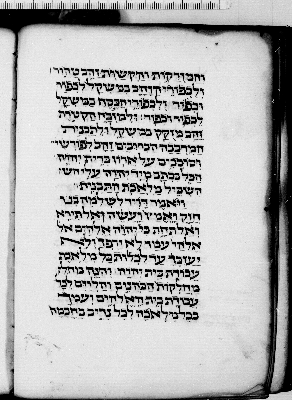 והמזרקות והקשות זהב טהור
ולכפורי הזהב במשקל לכפור
וכפור ולכפורי הכסף במשקל
לכפור וכפור׃ ולמזבח הקטרת
זהב מזקק במשקל ולתבנית
המרכבה הכרובים זהב לפורשי׳
וסוככים על ארון ברית יהוה׃
הכל בכתב מיד יהוה עלי השכ׳
השכיל מלאכת התבנית׃
ויאמר דויד לשלמה בנו
חזק ואמץ ועשה אל תירא
ואל תחת כי יהוה אלהים
אלהי עמך לא ירפך ולא
יעזבך עד לכלות כל מלאכת
עבודת בית יהוה׃ והנה מחלק׳
מחלקות הכהנים והלוים לכל
עבודת בית האלהים ועמך
בכל מלאכה לכל נדיב בחכמה